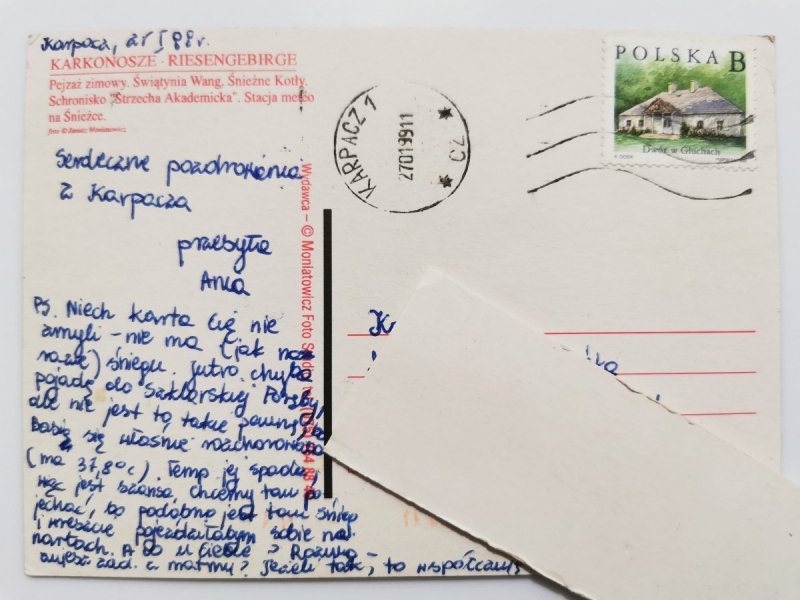 Karpacz, 27 I 99r.
KARKONOSZE · RIESENGEBIRGE
Pejzaż zimowy. Świątynia Wang. Śnieżne Kotły.
Schronisko "Strzecha Akademicka". Stacja meteo
na Śnieżce.
foto © Janusz Moniatowicz
Serdeczne pozdrowienia
z Karpacza
przesyła
Anka
PS. Niech karta Cię nie
zmyli - nie ma (jak na
razie) śniegu. Jutro chyba
pojadę do Szklarskiej Poręby,
ale nie jest to takie pewne, bo
Basia się właśnie rozchorowała
(ma 37,8°C). Temp jej spada,
więc jest szansa, chcemy tam po
jechać, bo podobno jest tam śnieg
i wreszcie pojeździłabym sobie na
nartach. A co u Ciebie? Rozwią-
zujesz zad. z matmy? Jeżeli tak, to współczuję
Wydawca – © Moniatowicz Foto Studio
KARPACZ 1
27019911
CZ
POLSKA B
Dwór w Głuchach
K